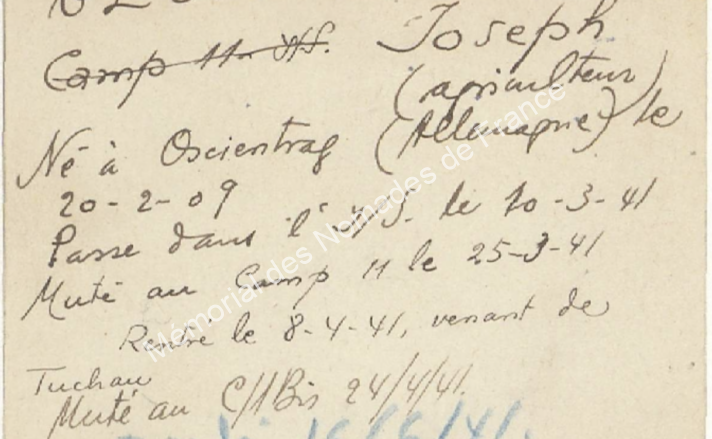 Camp 11
Joseph
(agriculteur)
Né à Oscientrag (Allemagne) le
20-2-09
Passé dans l' le 10-3-41
Muté au Camp 11 le 25-3-41
Rentré le 8-4-41, venant de
Tuchau
Muté au C/11Bis 24/4/41.
Mémorial des Nomades de France